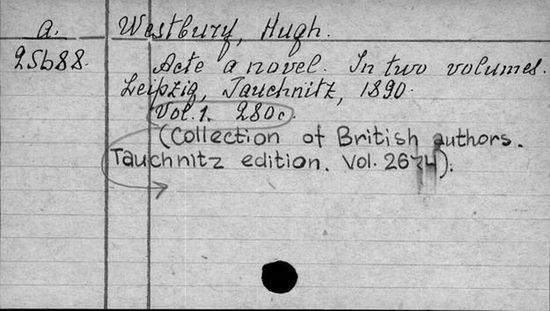 a. Westbury, Hugh.
25688. Acte a novel. In two volumes.
Leipzig, Tauchnitz, 1890.
Vol. 1. 280c.
(Collection of British authors.
Tauchnitz edition. Vol. 2674).